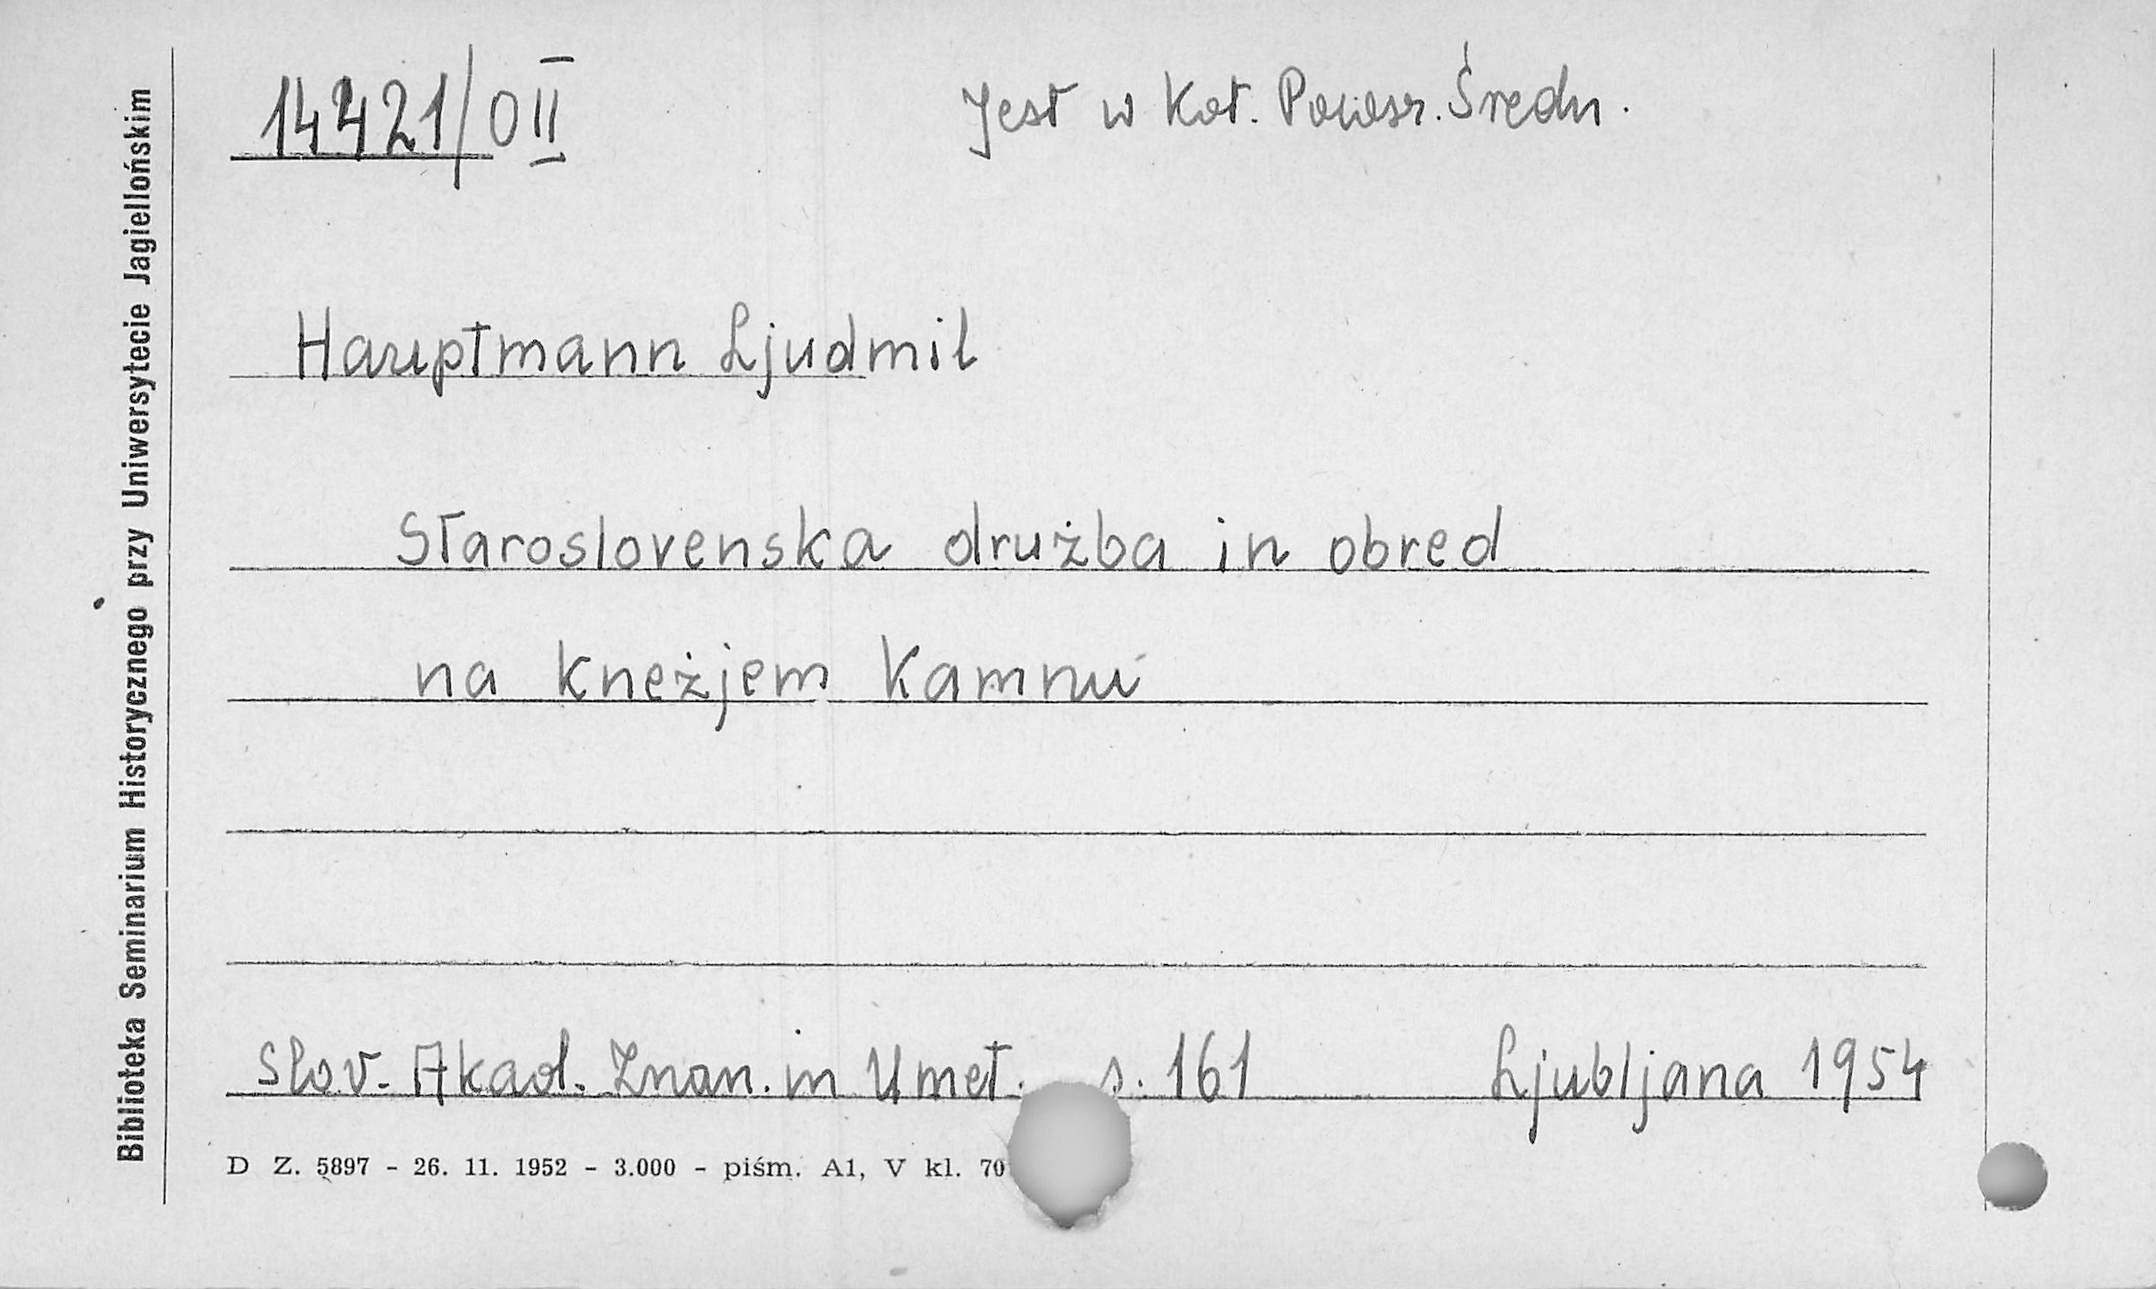 14421/O II
Jest w Kat. Powsz. Średn.
Hauptmann Ljudmil
Staroslovenska družba in obred
na knežjem Kamnu
Slov. Akad. Znan. in Umet. s. 161 Ljubljana 1954
D Z. 5897 - 26. 11. 1952 - 3.000 - piśm. A1, V kl. 70
Biblioteka Seminarium Historycznego przy Uniwersytecie Jagiellońskim